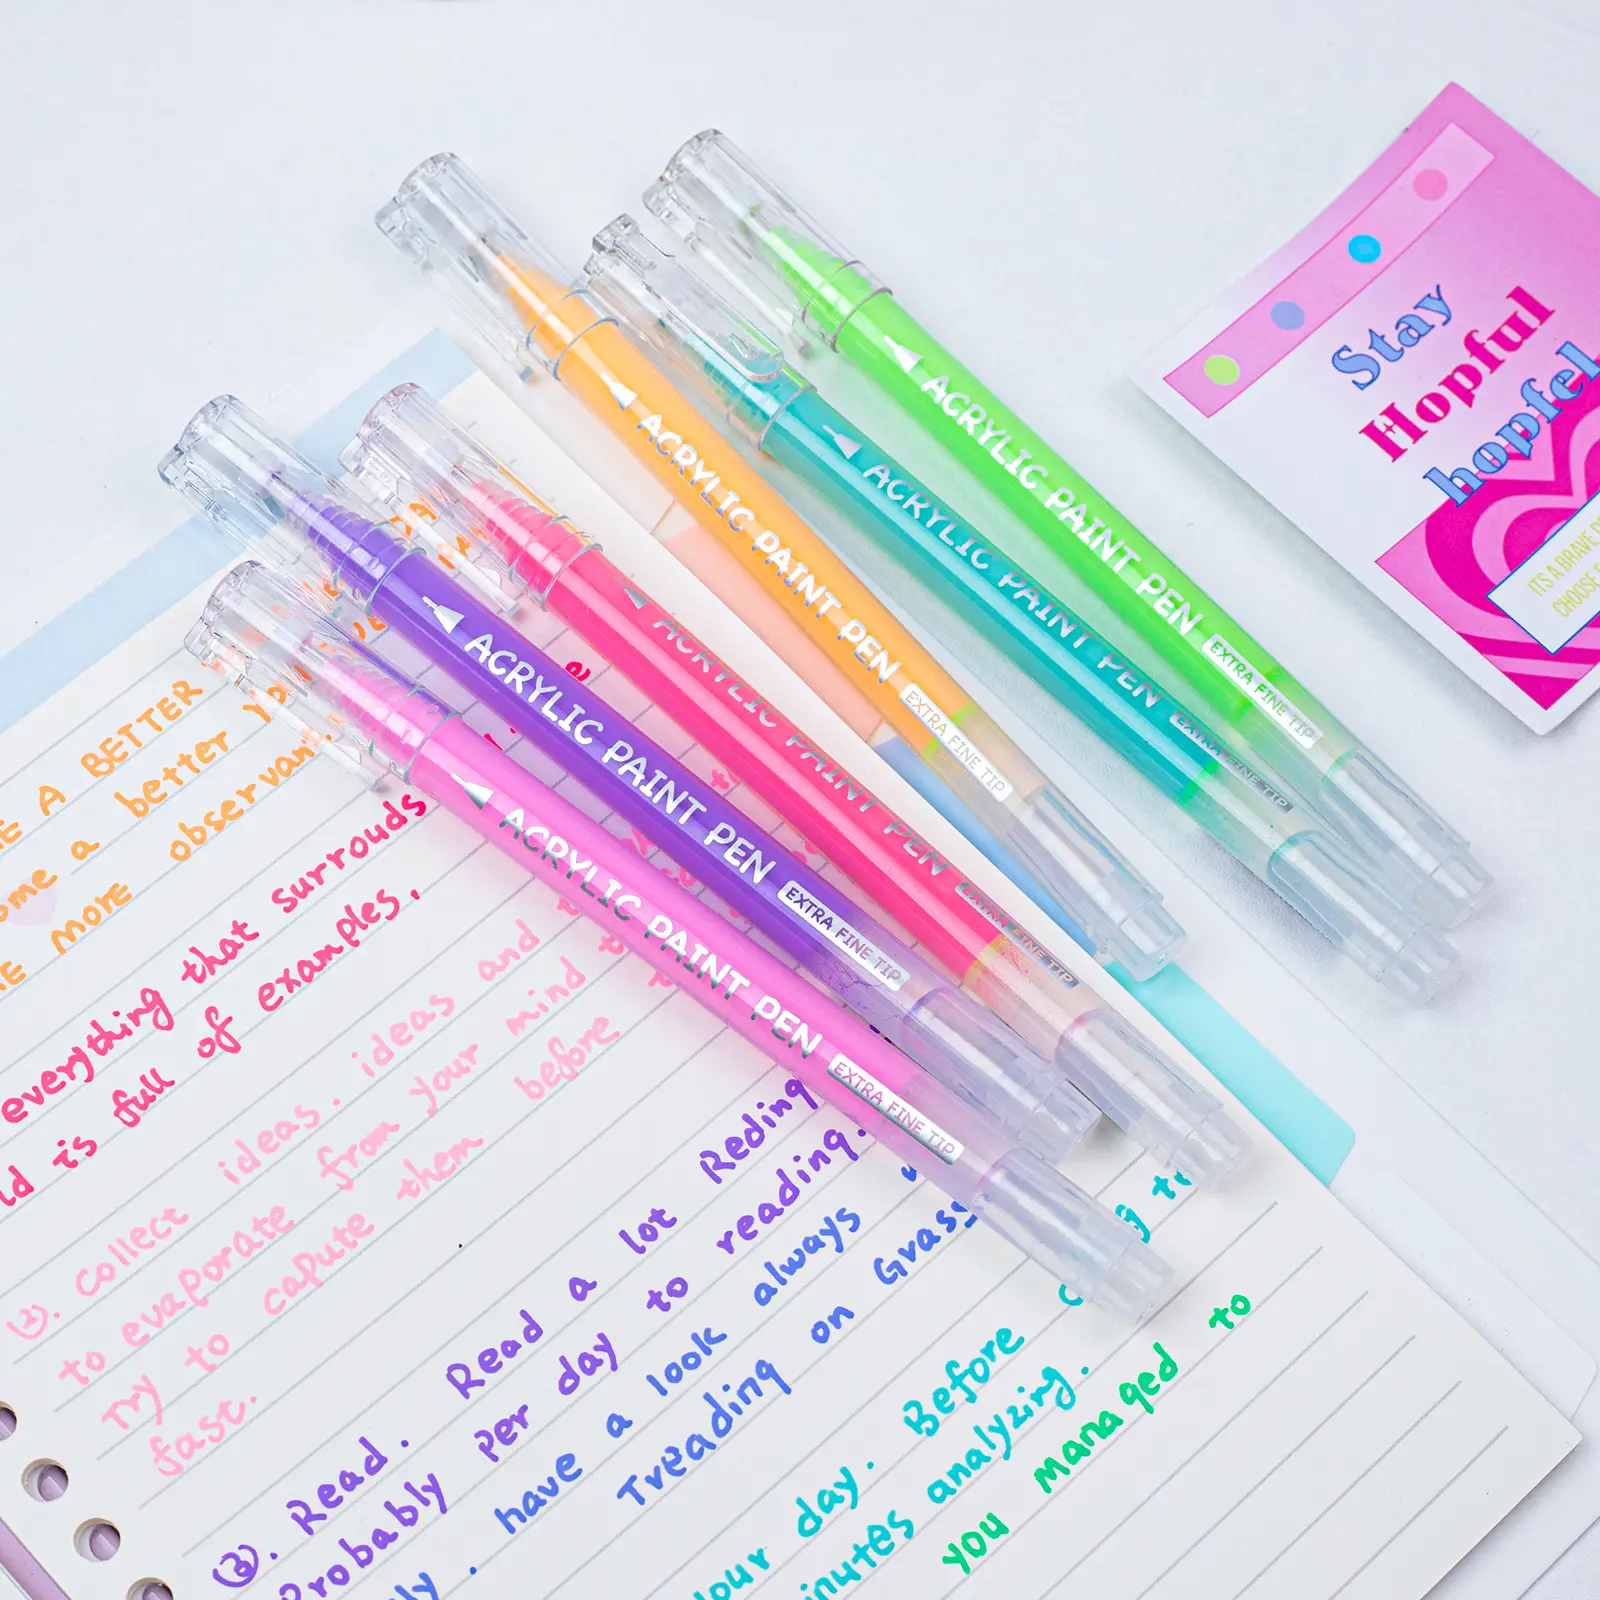 ACRYLIC PAINT PEN EXTRA FINE TIP
ACRYLIC PAINT PEN EXTRA FINE TIP
ACRYLIC PAINT PEN EXTRA FINE TIP
ACRYLIC PAINT PEN EXTRA FINE TIP
ACRYLIC PAINT PEN EXTRA FINE TIP
ACRYLIC PAINT PEN EXTRA FINE TIP
Stay
Hopful
hopfel
IT'S A BRAVE
CHOOSE
A BETTER
a better
MORE observan
everything that surrouds
is full of examples.
②. collect ideas. ideas and
to evaporate from your mind
Try to capute them before
fast.
③. Read. Read a lot Reding
Probably per day to reading.
have a look always
Treading on Grass
day. Before
analyzing.
you managed to